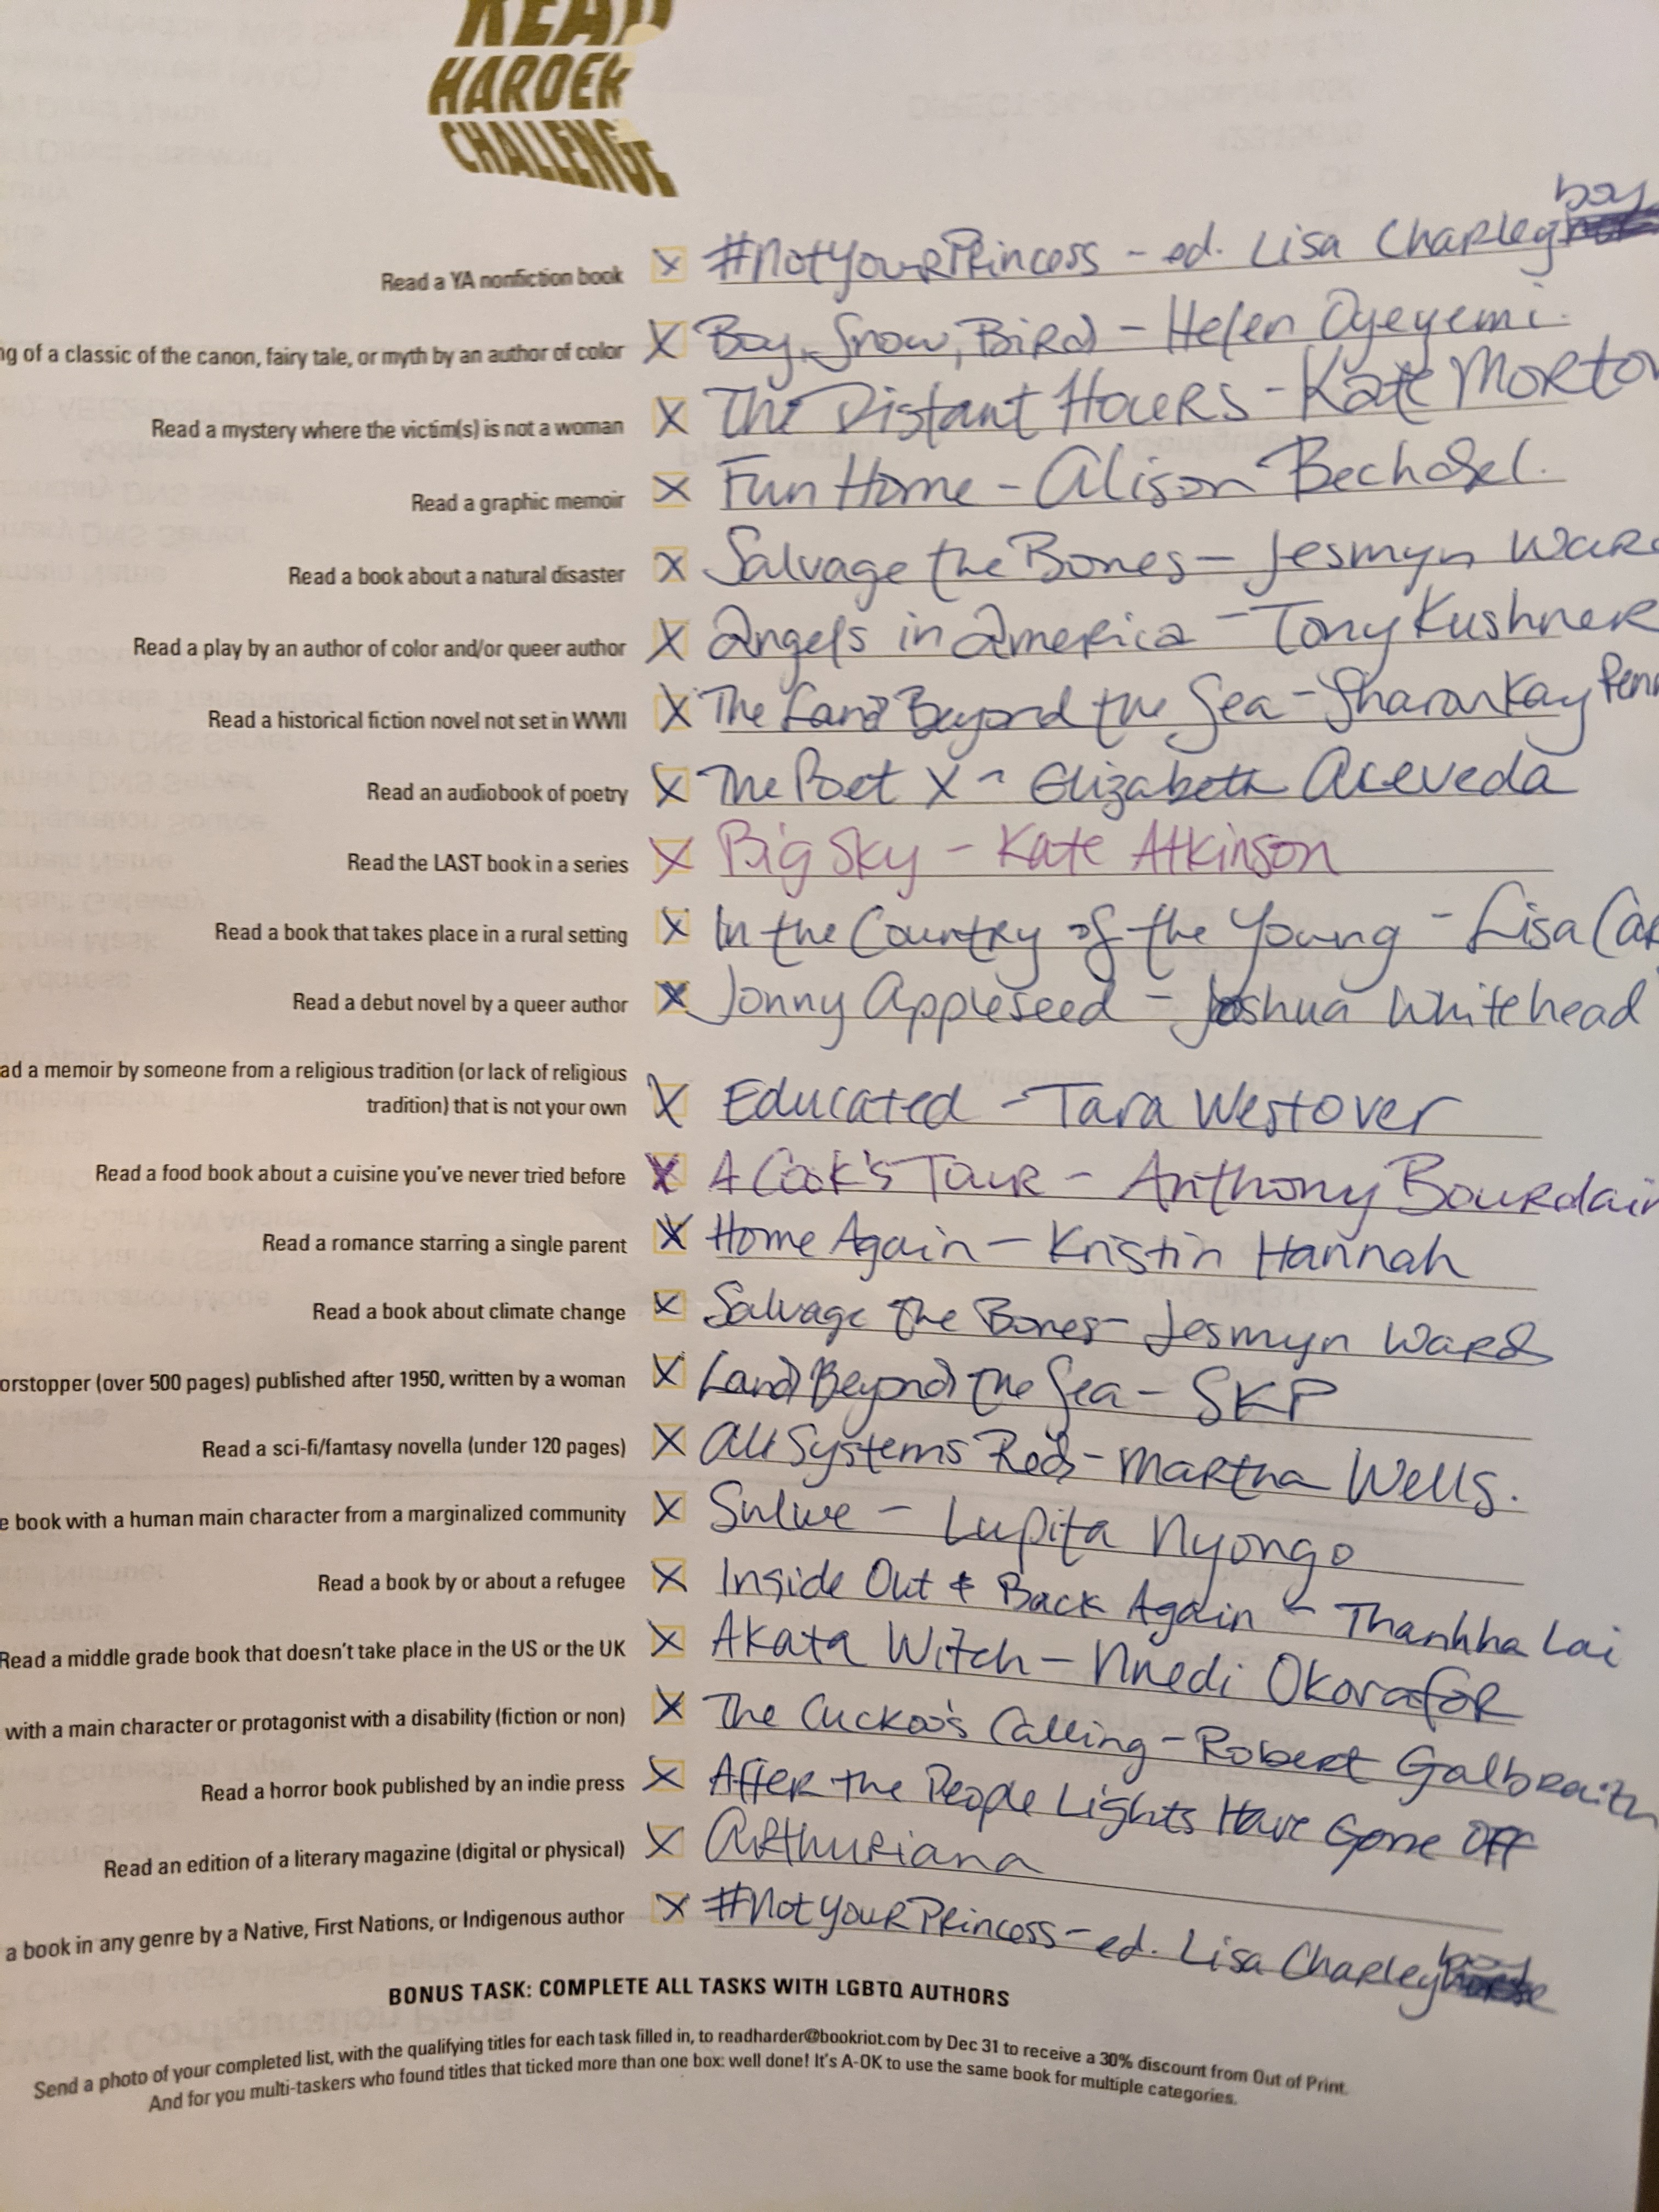 READ
HARDER
CHALLENGE
Read a YA nonfiction book #NotYourPrincess - ed. Lisa Charleyboy
ng of a classic of the canon, fairy tale, or myth by an author of color Boy, Snow, Bird - Helen Oyeyemi.
Read a mystery where the victim(s) is not a woman The Distant Hours - Kate Morto
Read a graphic memoir Fun Home - Alison Bechdel.
Read a book about a natural disaster Salvage the Bones - Jesmyn Ward
Read a play by an author of color and/or queer author Angels in America - Tony Kushner
Read a historical fiction novel not set in WWII The Land Beyond the Sea - Sharon Kay Penn
Read an audiobook of poetry The Poet X - Elizabeth Aceveda
Read the LAST book in a series Big Sky - Kate Atkinson
Read a book that takes place in a rural setting In the Country of the Young - Lisa Car
Read a debut novel by a queer author Jonny Appleseed - Joshua Whitehead
ad a memoir by someone from a religious tradition (or lack of religious
tradition) that is not your own Educated - Tara Westover
Read a food book about a cuisine you've never tried before A Cook's Tour - Anthony Bourdain
Read a romance starring a single parent Home Again - Kristin Hannah
Read a book about climate change Salvage the Bones - Jesmyn Ward
orstopper (over 500 pages) published after 1950, written by a woman Land Beyond the Sea - SKP
Read a sci-fi/fantasy novella (under 120 pages) All Systems Red - Martha Wells.
e book with a human main character from a marginalized community Sulwe - Lupita Nyongo
Read a book by or about a refugee Inside Out & Back Again - Thanhha Lai
Read a middle grade book that doesn't take place in the US or the UK Akata Witch - Nnedi Okorafor
with a main character or protagonist with a disability (fiction or non) The Cuckoo's Calling - Robert Galbraith
Read a horror book published by an indie press After the People Lights Have Gone Off
Read an edition of a literary magazine (digital or physical) Arthuriana
a book in any genre by a Native, First Nations, or Indigenous author #NotYourPrincess - ed. Lisa Charleyboy
BONUS TASK: COMPLETE ALL TASKS WITH LGBTQ AUTHORS
Send a photo of your completed list, with the qualifying titles for each task filled in, to readharder@bookriot.com by Dec 31 to receive a 30% discount from Out of Print.
And for you multi-taskers who found titles that ticked more than one box: well done! It's A-OK to use the same book for multiple categories.